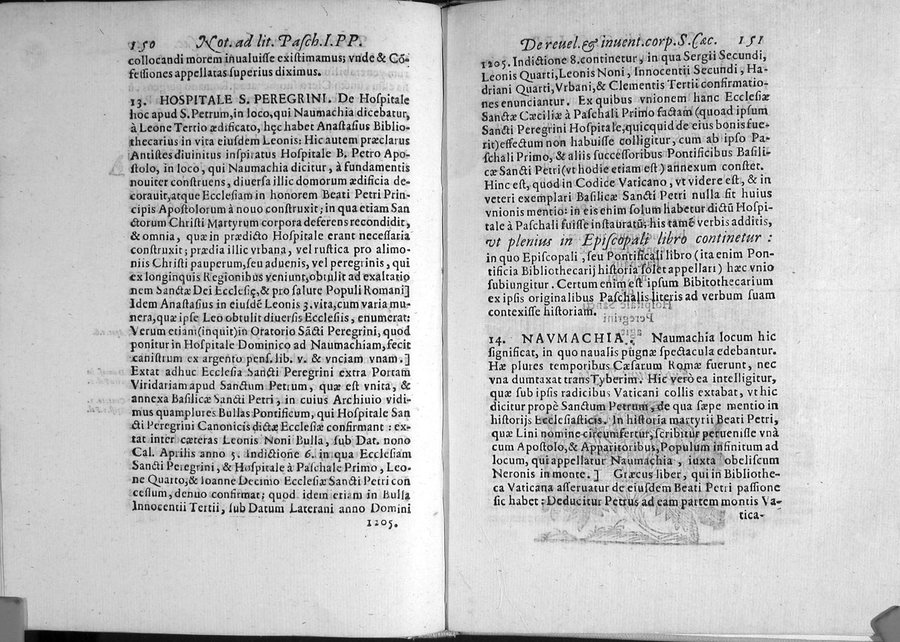 150 Not. ad lit. Pasch. I. PP.
collocandi morem inualuisse existimamus; vnde & Cõ-
fessiones appellatas superius diximus.
13. HOSPITALE S. PEREGRINI. De Hospitale
hoc apud S. Petrum, in loco, qui Naumachia dicebatur,
à Leone Tertio ædificato, hęc habet Anastasius Biblio-
thecarius in vita eiusdem Leonis: Hic autem præclarus
Antistes diuinitus inspiratus Hospitale B. Petro Apo-
stolo, in loco, qui Naumachia dicitur, à fundamentis
nouiter construens, diuersa illic domorum ædificia de-
corauit, atque Ecclesiam in honorem Beati Petri Prin-
cipis Apostolorum à nouo construxit; in qua etiam San
ctorum Christi Martyrum corpora deferens recondidit,
& omnia, quæ in prædicto Hospitale erant necessaria
construxit; prædia illic vrbana, vel rustica pro alimo-
niis Christi pauperum, seu aduenis, vel peregrinis, qui
ex longinquis Regionibus veniunt, obtulit ad exaltatio
nem Sanctæ Dei Ecclesię, & pro salute Populi Romani]
Idem Anastasius in eiusdẽ Leonis 3. vita, cum varia mu-
nera, quæ ipse Leo obtulit diuersis Ecclesiis, enumerat:
Verum etiam (inquit) in Oratorio Sãcti Peregrini, quod
ponitur in Hospitale Dominico ad Naumachiam, fecit
canistrum ex argento pens. lib. v. & vnciam vnam.]
Extat adhuc Ecclesia Sancti Peregrini extra Portam
Viridariam apud Sanctum Petrum, quæ est vnita, &
annexa Basilicæ Sancti Petri, in cuius Archiuio vidi-
mus quamplures Bullas Pontificum, qui Hospitale San
cti Peregrini Canonicis dictæ Ecclesiæ confirmant: ex-
tat inter cæteras Leonis Noni Bulla, sub Dat. nono
Cal. Aprilis anno 5. indictione 6. in qua Ecclesiam
Sancti Peregrini, & Hospitale à Paschale Primo, Leo-
ne Quarto, & Ioanne Decimo Ecclesiæ Sancti Petri con
cessum, denuo confirmat; quod idem etiam in Bulla
Innocentii Tertii, sub Datum Laterani anno Domini
1205.
De reuel. & inuent. corp. S. Cæc. 151
1205. Indictione 8. continetur, in qua Sergii Secundi,
Leonis Quarti, Leonis Noni, Innocentii Secundi, Ha-
driani Quarti, Vrbani, & Clementis Tertii confirmatio-
nes enunciantur. Ex quibus vnionem hanc Ecclesiæ
Sanctæ Cæciliæ à Paschali Primo factam (quoad ipsum
Sancti Peregrini Hospitale, quicquid de eius bonis fue-
rit) effectum non habuisse colligitur, cum ab ipso Pa-
schali Primo, & aliis successoribus Pontificibus Basili-
cæ Sancti Petri (vt hodie etiam est) annexum constet.
Hinc est, quod in Codice Vaticano, vt videre est, & in
veteri exemplari Basilicæ Sancti Petri nulla fit huius
vnionis mentio: in eis enim solum habetur dictũ Hospi-
tale à Paschali fuisse instauratũ; his tamẽ verbis additis,
vt plenius in Episcopali libro continetur:
in quo Episcopali, seu Pontificali libro (ita enim Pon-
tificia Bibliothecarij historia solet appellari) hæc vnio
subiungitur. Certum enim est ipsum Bibitothecarium
ex ipsis originalibus Paschalis literis ad verbum suam
contexisse historiam.
14. NAVMACHIA. Naumachia locum hic
significat, in quo naualis pugnæ spectacula edebantur.
Hæ plures temporibus Cæsarum Romæ fuerunt, nec
vna dumtaxat trans Tyberim. Hic vero ea intelligitur,
quæ sub ipsis radicibus Vaticani collis extabat, vt hic
dicitur propè Sanctum Petrum, de qua sæpe mentio in
historijs Ecclesiasticis. In historia martyrii Beati Petri,
quæ Lini nomine circumfertur, scribitur peruenisse vnà
cum Apostolo, & Apparitoribus, Populum infinitum ad
locum, qui appellatur Naumachia, iuxta obeliscum
Neronis in monte.] Græcus liber, qui in Bibliothe-
ca Vaticana asseruatur de eiusdem Beati Petri passione
sic habet: Deducitur Petrus ad eam partem montis Va-
tica-